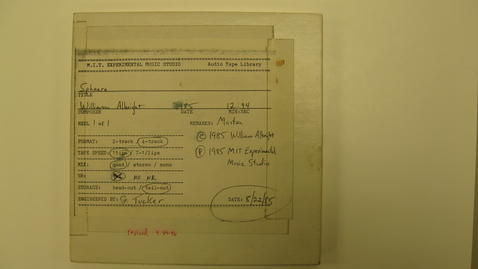 M.I.T. EXPERIMENTAL MUSIC STUDIO Audio Tape Library
Sphaera
TITLE
William Albright 1985 12:44
COMPOSER DATE MIN:SEC
REEL 1 of 1 REMARKS: Master
© 1985 William Albright
FORMAT: 2-track / 4-track
TAPE SPEED: 15ips / 7-1/2ips
℗ 1985 MIT Experimental Music Studio
MIX: quad / stereo / mono
NR: NR
STORAGE: head-out / tail-out
ENGINEERED BY: G. Tucker DATE: 8/22/85